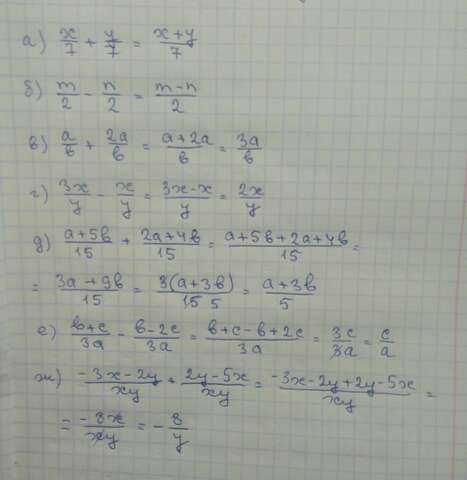 а) x/7 + y/7 = x+y/7
б) m/2 - n/2 = m-n/2
в) a/b + 2a/b = a+2a/b = 3a/b
г) 3x/y - x/y = 3x-x/y = 2x/y
д) a+5b/15 + 2a+4b/15 = a+5b+2a+4b/15 =
= 3a+9b/15 = 3(a+3b)/15 5 = a+3b/5
е) b+c/3a - b-2c/3a = b+c-b+2c/3a = 3c/3a = c/a
ж) -3x-2y/xy + 2y-5x/xy = -3x-2y+2y-5x/xy =
= -8x/xy = -8/y